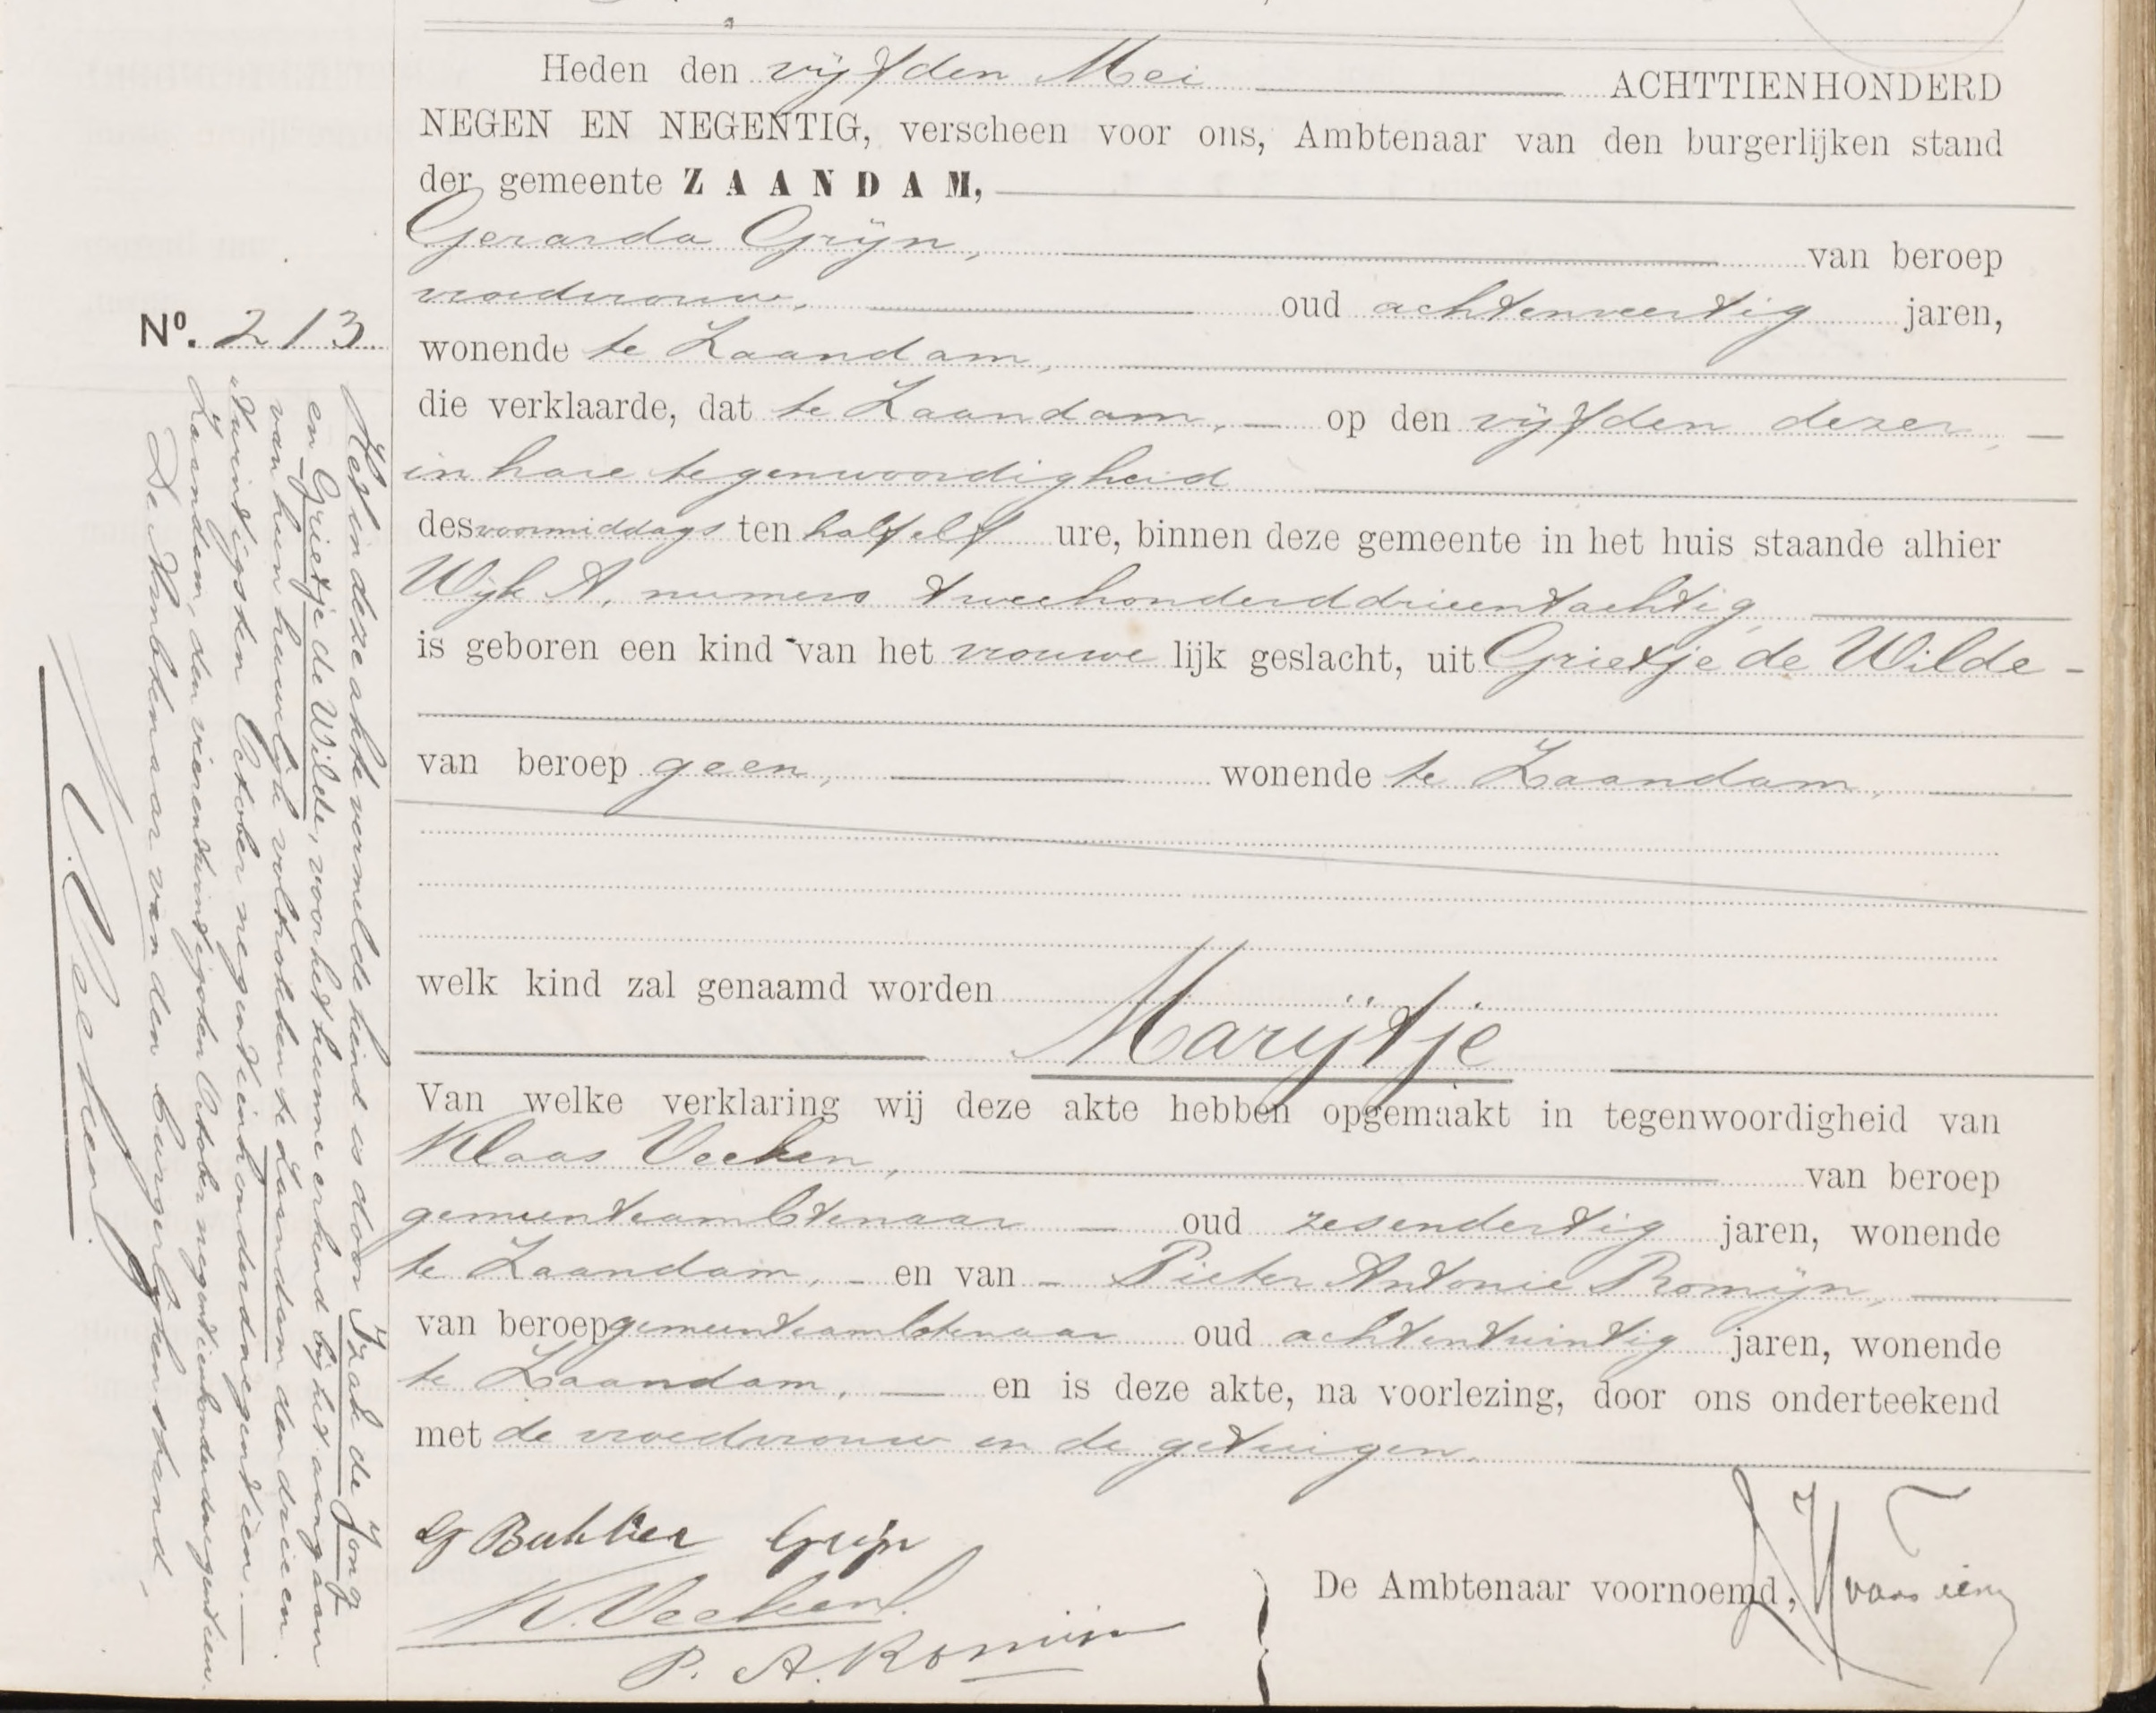 Heden den vijfden Mei ACHTTIENHONDERD
NEGEN EN NEGENTIG, verscheen voor ons, Ambtenaar van den burgerlijken stand
der gemeente ZAANDAM,
Gerarda Grijn, van beroep
vroedvrouw, oud achtenveertig jaren,
wonende te Zaandam,
die verklaarde, dat te Zaandam, op den vijfden dezer,
in hare tegenwoordigheid
des voormiddags ten half elf ure, binnen deze gemeente in het huis staande alhier
Wijk A, numero tweehonderddrieentachtig,
is geboren een kind van het vrouwelijk geslacht, uit Grietje de Wilde
van beroep geen, wonende te Zaandam,
welk kind zal genaamd worden
Marijtje
Van welke verklaring wij deze akte hebben opgemaakt in tegenwoordigheid van
Klaas Veeken, van beroep
gemeenteambtenaar oud zesendertig jaren, wonende
te Zaandam, en van Pieter Antonie Romijn,
van beroep gemeenteambtenaar oud achtentwintig jaren, wonende
te Zaandam, en is deze akte, na voorlezing, door ons onderteekend
met de vroedvrouw en de getuigen.
G Bakker Grijn
K. Veeken
P. A. Romijn
De Ambtenaar voornoemd,
No. 213
Het in deze akte vermelde kind is door Izak de Jong
en Grietje de Wilde, voor het hunne erkend bij het aangaan
van hun huwelijk voltrokken te Zaandam den drie en
twintigsten October negentienhonderdnegentien.
Zaandam, den vierentwintigsten October negentienhonderdnegentien.
De Ambtenaar van den burgerlijken stand,
K. Veeken